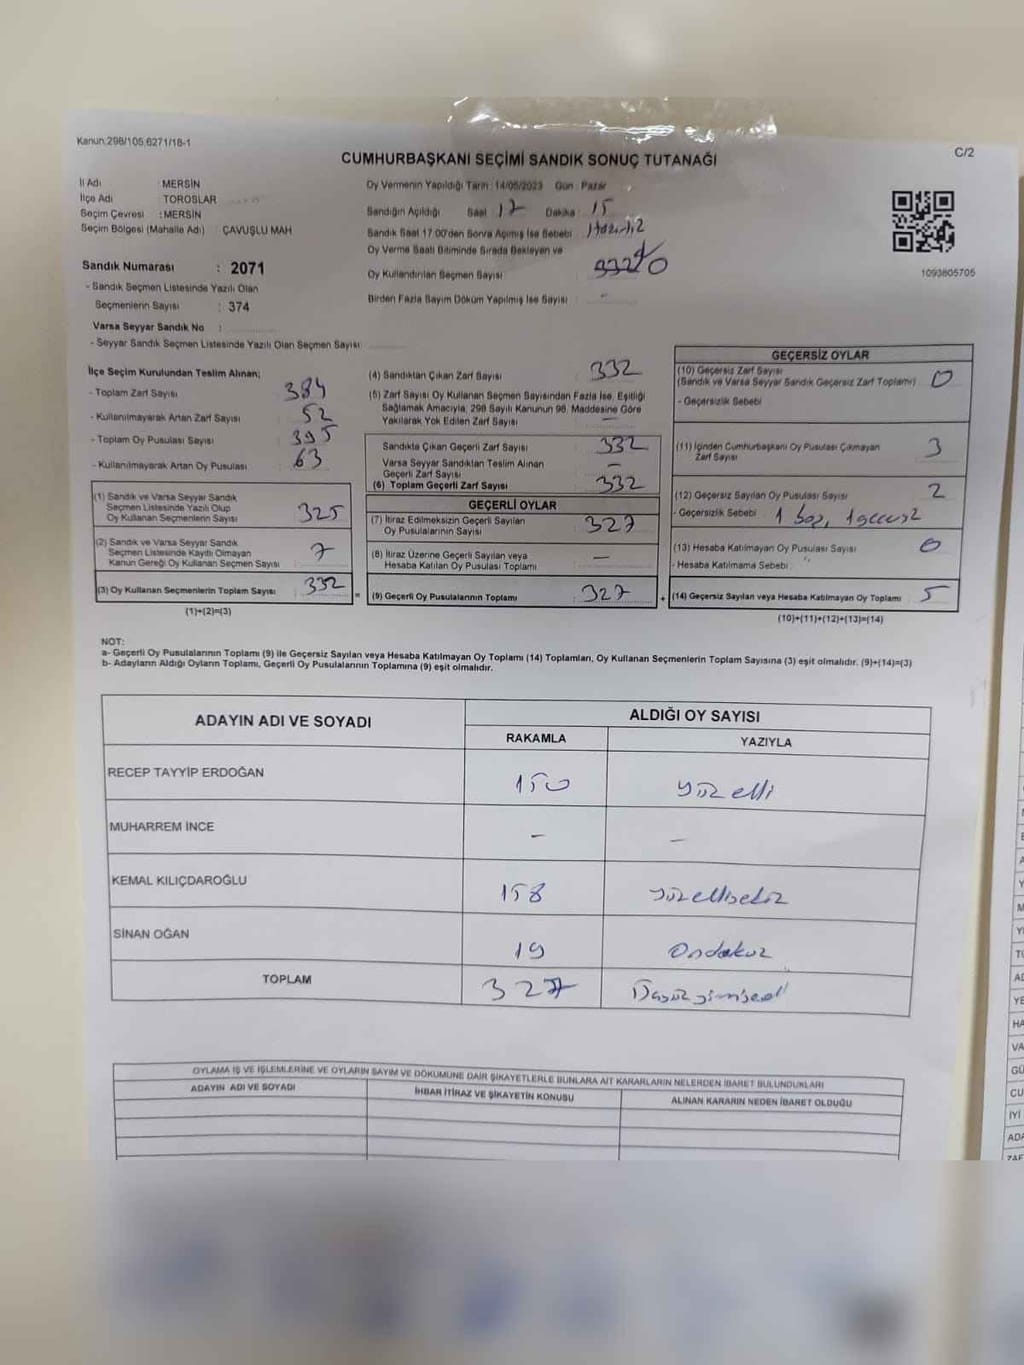 Kanun:298/105,6271/18-1
C/2
CUMHURBAŞKANI SEÇİMİ SANDIK SONUÇ TUTANAĞI
İl Adı : MERSİN
İlçe Adı : TOROSLAR
Seçim Çevresi : MERSİN
Seçim Bölgesi (Mahalle Adı) : ÇAVUŞLU MAH
Sandık Numarası : 2071
- Sandık Seçmen Listesinde Yazılı Olan
Seçmenlerin Sayısı : 374
Varsa Seyyar Sandık No :
- Seyyar Sandık Seçmen Listesinde Yazılı Olan Seçmen Sayısı
Oy Vermenin Yapıldığı Tarih : 14/05/2023 Gün : Pazar
Sandığın Açıldığı Saat 17 Dakika : 15
Sandık Saat 17.00'den Sonra Açılmış İse Sebebi :
Oy Verme Saati Bitiminde Sırada Bekleyen ve
Oy Kullandırılan Seçmen Sayısı :
Birden Fazla Sayım Döküm Yapılmış İse Sayısı : -
1093805705
İlçe Seçim Kurulundan Teslim Alınan;
- Toplam Zarf Sayısı 384
- Kullanılmayarak Artan Zarf Sayısı : 52
- Toplam Oy Pusulası Sayısı 395
- Kullanılmayarak Artan Oy Pusulası : 63
(1) Sandık ve Varsa Seyyar Sandık
Seçmen Listesinde Yazılı Olup
Oy Kullanan Seçmenlerin Sayısı : 325
(2) Sandık ve Varsa Seyyar Sandık
Seçmen Listesinde Kayıtlı Olmayan
Kanun Gereği Oy Kullanan Seçmen Sayısı : 7
(3) Oy Kullanan Seçmenlerin Toplam Sayısı : 332
(1)+(2)=(3)
(4) Sandıktan Çıkan Zarf Sayısı : 332
(5) Zarf Sayısı Oy Kullanan Seçmen Sayısından Fazla İse, Eşitliği
Sağlamak Amacıyla, 298 Sayılı Kanunun 98. Maddesine Göre
Yakılarak Yok Edilen Zarf Sayısı : -
Sandıkta Çıkan Geçerli Zarf Sayısı : 332
Varsa Seyyar Sandıktan Teslim Alınan
Geçerli Zarf Sayısı : -
(6) Toplam Geçerli Zarf Sayısı : 332
GEÇERLİ OYLAR
(7) İtiraz Edilmeksizin Geçerli Sayılan
Oy Pusulalarının Sayısı : 327
(8) İtiraz Üzerine Geçerli Sayılan veya
Hesaba Katılan Oy Pusulası Toplamı : -
= (9) Geçerli Oy Pusulalarının Toplamı : 327
GEÇERSİZ OYLAR
(10) Geçersiz Zarf Sayısı
(Sandık ve Varsa Seyyar Sandık Geçersiz Zarf Toplamı) : 0
- Geçersizlik Sebebi
(11) İçinden Cumhurbaşkanı Oy Pusulası Çıkmayan
Zarf Sayısı : 3
(12) Geçersiz Sayılan Oy Pusulası Sayısı : 2
- Geçersizlik Sebebi : 1 boş, 1 geçersiz
(13) Hesaba Katılmayan Oy Pusulası Sayısı : 0
- Hesaba Katılmama Sebebi :
+ (14) Geçersiz Sayılan veya Hesaba Katılmayan Oy Toplamı : 5
(10)+(11)+(12)+(13)=(14)
NOT:
a- Geçerli Oy Pusulalarının Toplamı (9) ile Geçersiz Sayılan veya Hesaba Katılmayan Oy Toplamı (14) Toplamları, Oy Kullanan Seçmenlerin Toplam Sayısına (3) eşit olmalıdır. (9)+(14)=(3)
b- Adayların Aldığı Oyların Toplamı, Geçerli Oy Pusulalarının Toplamına (9) eşit olmalıdır.
ADAYIN ADI VE SOYADI
ALDIĞI OY SAYISI
RAKAMLA YAZIYLA
RECEP TAYYİP ERDOĞAN 150 yüz elli
MUHARREM İNCE - -
KEMAL KILIÇDAROĞLU 158 yüzellisekiz
SİNAN OĞAN 19 Ondokuz
TOPLAM 327 Üçyüz yirmiyedi
OYLAMA İŞ VE İŞLEMLERİNE VE OYLARIN SAYIM VE DÖKÜMÜNE DAİR ŞİKAYETLERLE BUNLARA AİT KARARLARIN NELERDEN İBARET BULUNDUKLARI
ADAYIN ADI VE SOYADI
İHBAR İTİRAZ VE ŞİKAYETİN KONUSU
ALINAN KARARIN NEDEN İBARET OLDUĞU